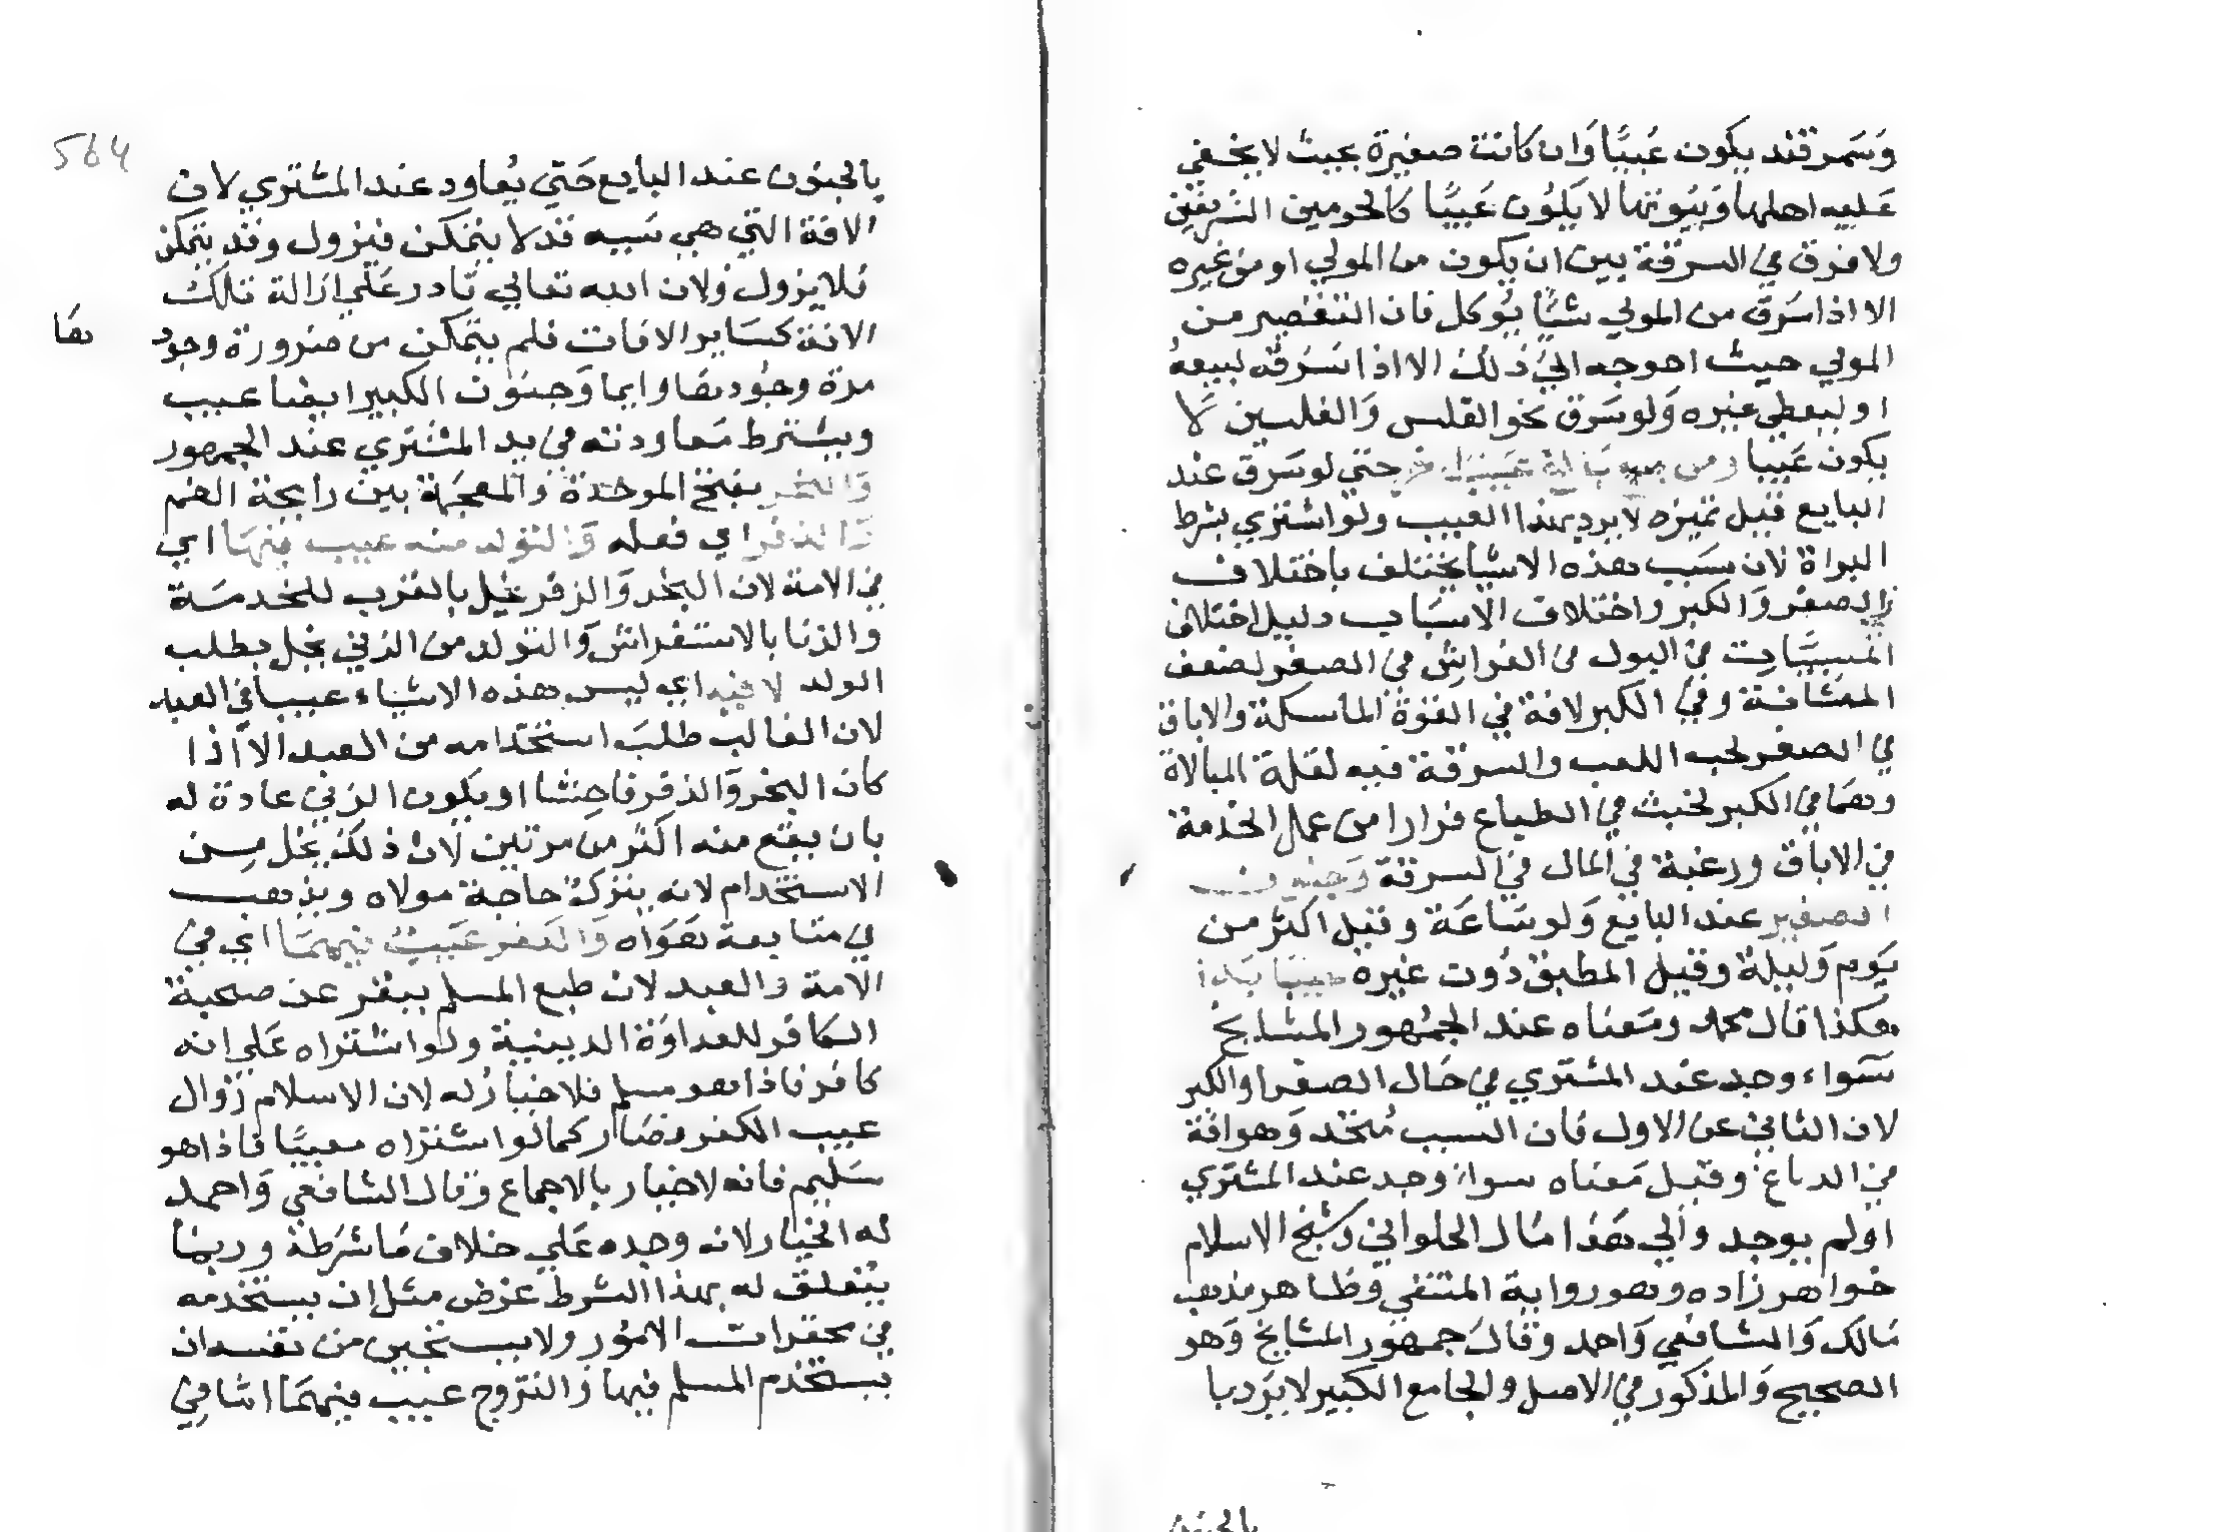 وَسَمرقند يكون عَيبًا وَان كانت صغيرة بحيث لا يخفي
عَليه اهلها وَبيُوتها لا يَكُون عَيبًا كالحرمين الشريفين
ولا فرق في السرقة بين ان يكون من المولي او من غيره
الا اذا سَرق من المولي شيًا يُوكل فان التقصير من
المولي حيث احوجه اليَ ذلك الا اذا سَرقه لبيعهُ
او ليعطي غيره وَلو سَرق نحو الفلس وَالفلسين لا
يكون عَيبا ومن حتي لو سَرق عند
البايع قبل تميزه لا يرد بهذا العيب ولو اشتري بشرط
البراة لان سَبب هذه الاشيا يختلف باختلاف
الصغر وَالكبر واختلاف الاسبَاب دليل اختلاف
المسببَّات في البول في الفراش في الصغر لضعف
المثانة وفي الكبر لافة في القوة الماسكة والاباق
في الصغر لحب اللعب والسرقة فيه لقلة المبالاة
وهمَا في الكبر لخبث في الطباع فرارا من عمل الخدمة
في الاباق ورغبة في المال في السرقة وَجنون
الصغير عند البايع وَلو سَاعَة وقيل اكثر من
يَوم وَليلة وقيل المطبق دُون غيره عيبَا بَدا
هكذا قال محمد ومَعناه عند الجمُهور المشايخ
سَوَاء وجد عند المشتري في حَال الصغر او الكبر
لان الثاني عن الاول فان السبب مُتحد وَهو افة
في الدماغ وقيل مَعناه سواء وجد عند المشتري
اولم يوجد والي هَذا مَال الحلواني وَشيخ الاسلام
خواهر زاده وهو رواية المنتقي وظاهر مذهب
مَالك وَالشافعي وَاحمد وقالَ جمهور المشايخ وَهو
الصحيح وَالمذكور في الاصل والجامع الكبير لا يَرد با
بالجنون
564
بالجنون عند البايع حَتي يُعاود عند المشتري لان
الافة التي هي سَببه قد لا يتمكن فيزول وقد يتمكن
فلا يزول ولان الله تعالي قادر عَلي ازالة تلك
الافة كسَاير الافات فلم يتمكن من ضرورة وجود
هَا
مرة وجُودهَا وايما وَجنون الكبير ايضا عيب
ويشترط مَعاودته في يد المشتري عند الجمهور
وَالبخر بفتح الموحدة والمعجَمة بين رايحة الفم
وَالذفر في فعله وَالتولد منه عيب فيهَا اي
في الامة لان البخر وَالزفر يخل بالقرب للخدمَة
والزنا بالاستفراش وَالتولد من الزني يخل بطلب
الولد لا فيه اي ليس هذه الاشياء عيبا في العبد
لان الغالب طلبَ استخدامه من العبد الا اذا
كان البخر وَالذفر فاحِشا او يكون الزني عادة له
بان يقع منه اكثر من مرتين لان ذلك يخل من
الاستخدام لانه يترك حاجة مولاه ويذهب
في متابعة هَوَاه وَالكفر عَيبٌ فيهمَا اي في
الامة والعبد لان طبع المسلم ينفر عن صحبة
الكافر للعداوَة الدينية ولو اشتراه عَلي انه
كافر فاذا هو مسلم فلا خيارُ له لان الاسلام زوال
عيب الكفر وصَار كما لو اشتراه معيبًا فاذا هو
سَليم فانه لا خيار بالاجماع وقال الشافعي وَاحمد
له الخيار لانه وجده عَلي خلاف مَا شرَطه وربمَا
يتعلق له بهذا الشرط غرض مثل ان يستخدمه
في محقرات الامُور ولا يستجيز من نفسه ان
يستخدم المسلم فيها وَالتزوج عيب فيهمَا امَا في